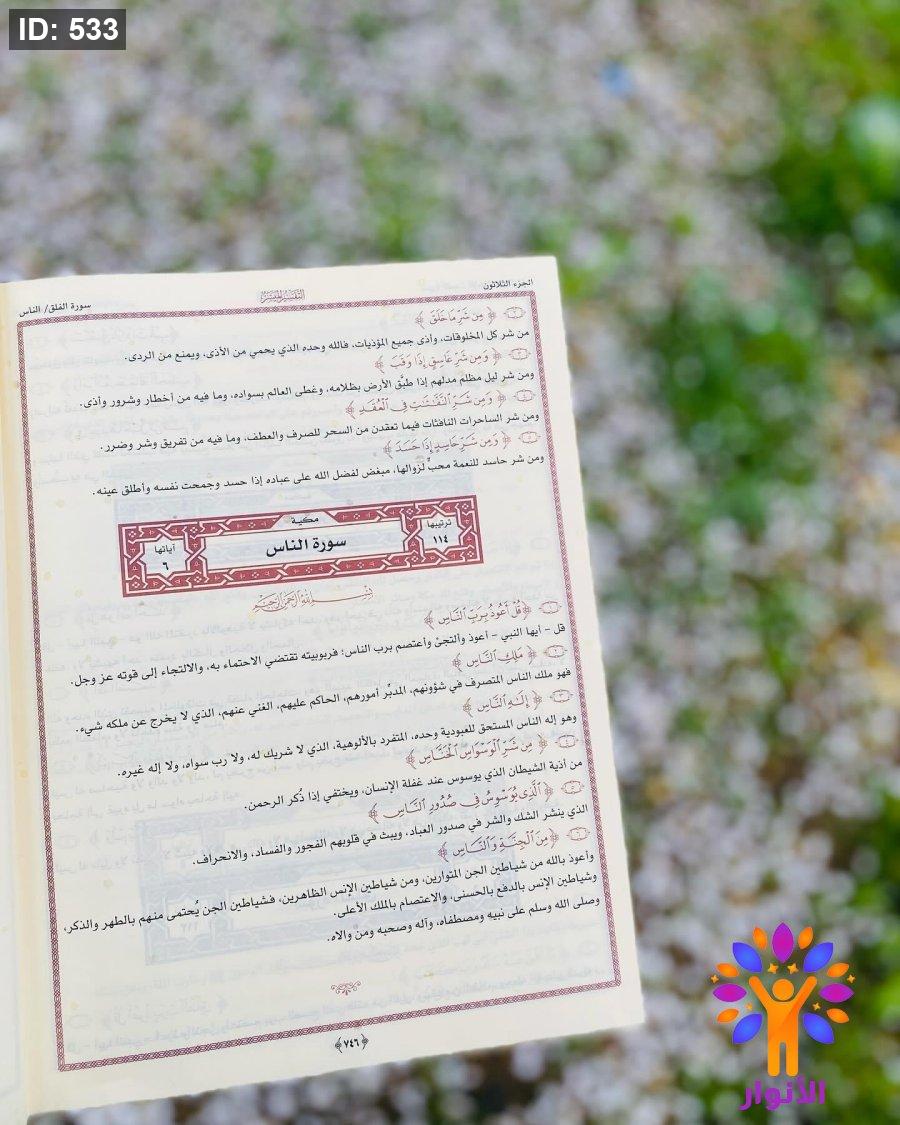 ID: 533
الجزء الثلاثون
التفسير الميسر
سورة الفلق/ الناس
﴿ مِن شَرِّ مَا خَلَقَ ﴾
من شر كل المخلوقات، وأذى جميع المؤذيات، فالله وحده الذي يحمي من الأذى، ويمنع من الردى.
﴿ وَمِن شَرِّ غَاسِقٍ إِذَا وَقَبَ ﴾
ومن شر ليل مظلم مدلهم إذا طبَّق الأرض بظلامه، وغطى العالم بسواده، وما فيه من أخطار وشرور وأذى.
﴿ وَمِن شَرِّ النَّفَّٰثَٰتِ فِي الْعُقَدِ ﴾
ومن شر الساحرات النافثات فيما تعقدن من السحر للصرف والعطف، وما فيه من تفريق وشر وضرر.
﴿ وَمِن شَرِّ حَاسِدٍ إِذَا حَسَدَ ﴾
ومن شر حاسد للنعمة محبٍّ لزوالها، مبغض لفضل الله على عباده إذا حسد وجمحت نفسه وأطلق عينه.
مكية
ترتيبها
١١٤
سورة الناس
آياتها
٦
بسم الله الرحمن الرحيم
﴿ قُلْ أَعُوذُ بِرَبِّ النَّاسِ ﴾
قل – أيها النبي – أعوذ وألتجئ وأعتصم برب الناس؛ فربوبيته تقتضي الاحتماء به، والالتجاء إلى قوته عز وجل.
﴿ مَلِكِ النَّاسِ ﴾
فهو ملك الناس المتصرف في شؤونهم، المدبِّر أمورهم، الحاكم عليهم، الغني عنهم، الذي لا يخرج عن ملكه شيء.
﴿ إِلَٰهِ النَّاسِ ﴾
وهو إله الناس المستحق للعبودية وحده، المتفرد بالألوهية، الذي لا شريك له، ولا رب سواه، ولا إله غيره.
﴿ مِن شَرِّ الْوَسْوَاسِ الْخَنَّاسِ ﴾
من أذية الشيطان الذي يوسوس عند غفلة الإنسان، ويختفي إذا ذُكر الرحمن.
﴿ الَّذِي يُوَسْوِسُ فِي صُدُورِ النَّاسِ ﴾
الذي ينشر الشك والشر في صدور العباد، ويبث في قلوبهم الفجور والفساد، والانحراف.
﴿ مِنَ الْجِنَّةِ وَالنَّاسِ ﴾
وأعوذ بالله من شياطين الجن المتوارين، ومن شياطين الإنس الظاهرين، فشياطين الجن يُحتمى منهم بالطهر والذكر،
وشياطين الإنس بالدفع بالحسنى، والاعتصام بالملك الأعلى.
وصلى الله وسلم على نبيه ومصطفاه، وآله وصحبه ومن والاه.
﴿٧٤٦﴾
الأنوار